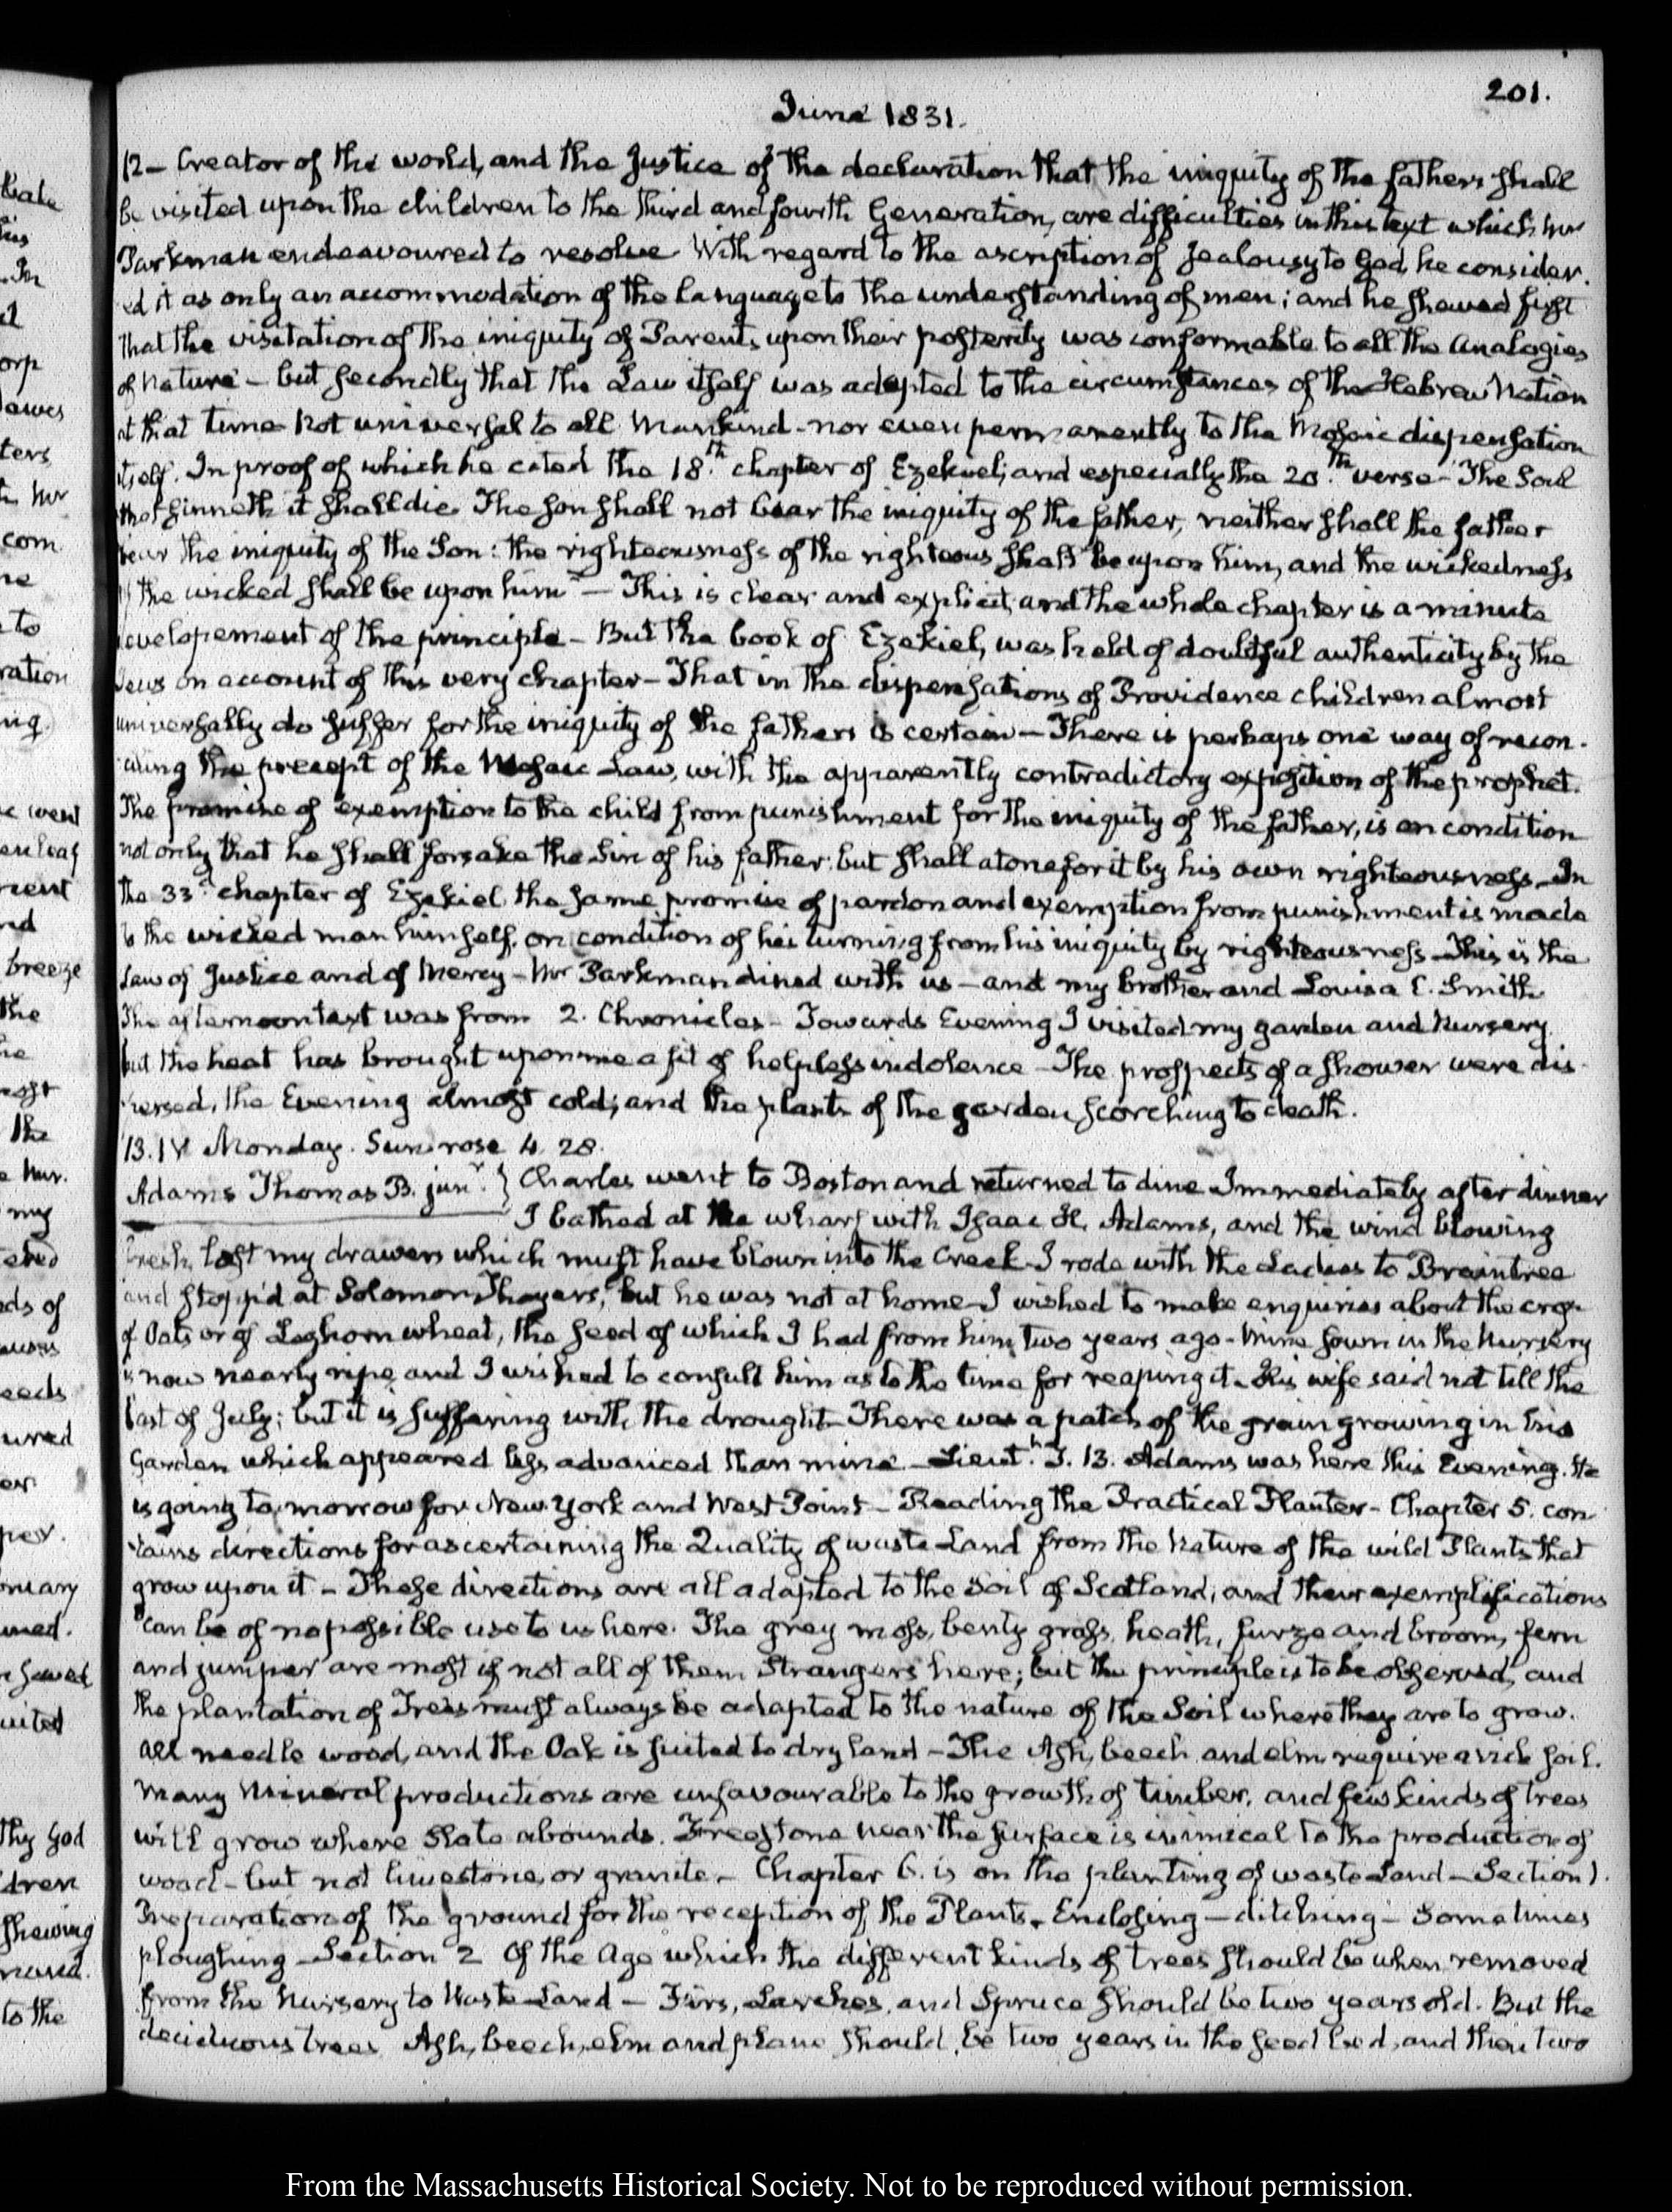 201.
June 1831.
12 – Creator of the world, and the Justice of the declaration that the iniquity of the fathers shall
be visited upon the children to the third and fourth Generation, are difficulties in this text which Mr
Parkman endeavoured to resolve With regard to the ascription of Jealousy to God, he consider-
ed it as only an accommodation of the language to the understanding of men; and he shewed first
that the visitation of the iniquity of Parents upon their posterity was conformable to all the Analogies
of Nature – but secondly that the Law itself was adapted to the circumstances of the Hebrew Nation
at that time Not universal to all Mankind – nor even permanently to the Mosaic dispensation
itself. In proof of which he cited the 18.th chapter of Ezekiel; and especially the 20.th verse – The Soul
that sinneth it shall die. The son shall not bear the iniquity of the father, neither shall the father
bear the iniquity of the Son: the righteousness of the righteous shall be upon him, and the wickedness
of the wicked shall be upon him" – This is clear and explicit, and the whole chapter is a minute
developement of the principle – But the book of Ezekiel, was held of doubtful authenticity by the
Jews on account of this very chapter – That in the dispensations of Providence children almost
universally do suffer for the iniquity of the fathers is certain – There is perhaps one way of recon-
ciling the precept of the Mosaic Law, with the apparently contradictory exposition of the prophet.
The promise of exemption to the child from punishment for the iniquity of the father, is on condition
not only that he shall forsake the Sin of his father; but shall atone for it by his own righteousness – In
the 33.d chapter of Ezekiel the same promise of pardon and exemption from punishment is made
to the wicked man himself, on condition of his turning from his iniquity by righteousness – This is the
Law of Justice and of Mercy – Mr Parkman dined with us – and my brother and Louisa C. Smith
The afternoon text was from 2. Chronicles – Towards Evening I visited my garden and Nursery.
but the heat has brought upon me a fit of helpless indolence – The prospects of a shower were dis-
persed, the Evening almost cold; and the plants of the garden scorching to death.
13. IV Monday. Sun rose 4. 28.
Adams Thomas B. junr. } Charles went to Boston and returned to dine Immediately after dinner
I bathed at the wharf with Isaac H. Adams, and the wind blowing
fresh, lost my drawers which must have blown into the Creek – I rode with the Ladies to Braintree
and stopp'd at Solomon Thayer's, but he was not at home – I wished to make enquiries about the crop
of Oats or of Leghorn wheat, the seed of which I had from him two years ago – Mine sown in the Nursery
is now nearly ripe and I wished to consult him as to the time for reaping it – His wife said not till the
last of July; but it is suffering with the drought – There was a patch of the grain growing in his
Garden which appeared less advanced than mine – Lieut.t T. B. Adams was here this Evening. He
is going to-morrow for New-York and West-Point – Reading the Practical Planter – Chapter 5. con-
tains directions for ascertaining the Quality of waste Land from the Nature of the wild Plants that
grow upon it – These directions are all adapted to the Soil of Scotland, and their exemplifications
can be of no possible use to us here. The grey moss, benty grass, heath, furze and broom, fern
and juniper are most if not all of them Strangers here; but the principle is to be observed, and
the plantation of Trees must always be adapted to the nature of the Soil where they are to grow.
All needle wood, and the Oak is suited to dry land – The Ash, beech and elm require a rich soil.
Many Mineral productions are unfavourable to the growth of timber, and few kinds of trees
will grow where Slate abounds. Freestone near the surface is inimical to the production of
wood – but not limestone, or granite – Chapter 6. is on the planting of waste Land – Section 1.
Preparation of the ground for the reception of the Plants. Enclosing – ditching – Sometimes
ploughing – Section 2 Of the Age which the different kinds of trees should be when removed
from the Nursery to Waste Land – Firs, Larches, and Spruce should be two years old. But the
deciduous trees Ash, beech, elm and plane should be two years in the seed bed, and then two
From the Massachusetts Historical Society. Not to be reproduced without permission.